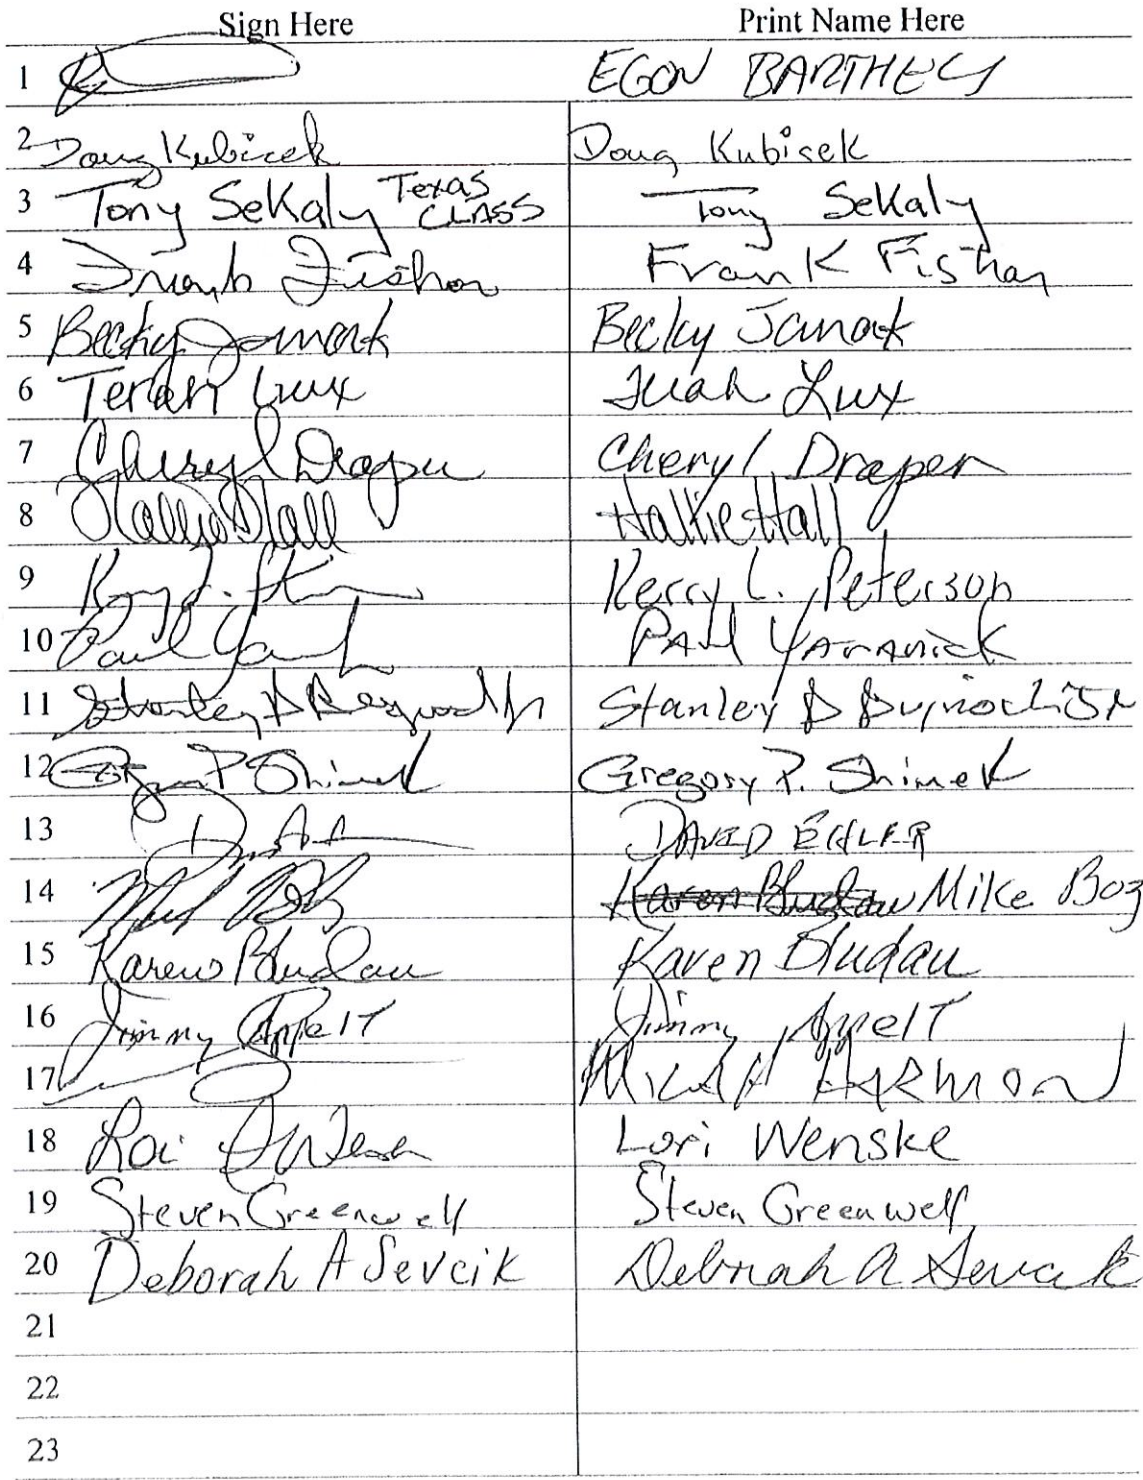 Sign Here Print Name Here
1 EGON BARTHELS
2 Doug Kubicek Doug Kubicek
3 Tony Sekaly Texas CLASS Tony Sekaly
4 Frank Fishar Frank Fishar
5 Becky Janak Becky Janak
6 Terah Lux Terah Lux
7 Cheryl Draper Cheryl Draper
8 Hallie Hall Hallie Hall
9 Kerry L. Peterson
10 Paul Paul Yaranick
11 Stanley D Stanley D Jr
12 P Shimek Gregory P. Shimek
13 DAVID EHLER
14 Karen Bludau Mike Boz
15 Karen Bludau Karen Bludau
16 Jimmy Appelt Jimmy Appelt
17 Micah HARMON
18 Lori Wenske Lori Wenske
19 Steven Greenwell Steven Greenwell
20 Deborah A Sevcik Deborah A Sevcik
21
22
23